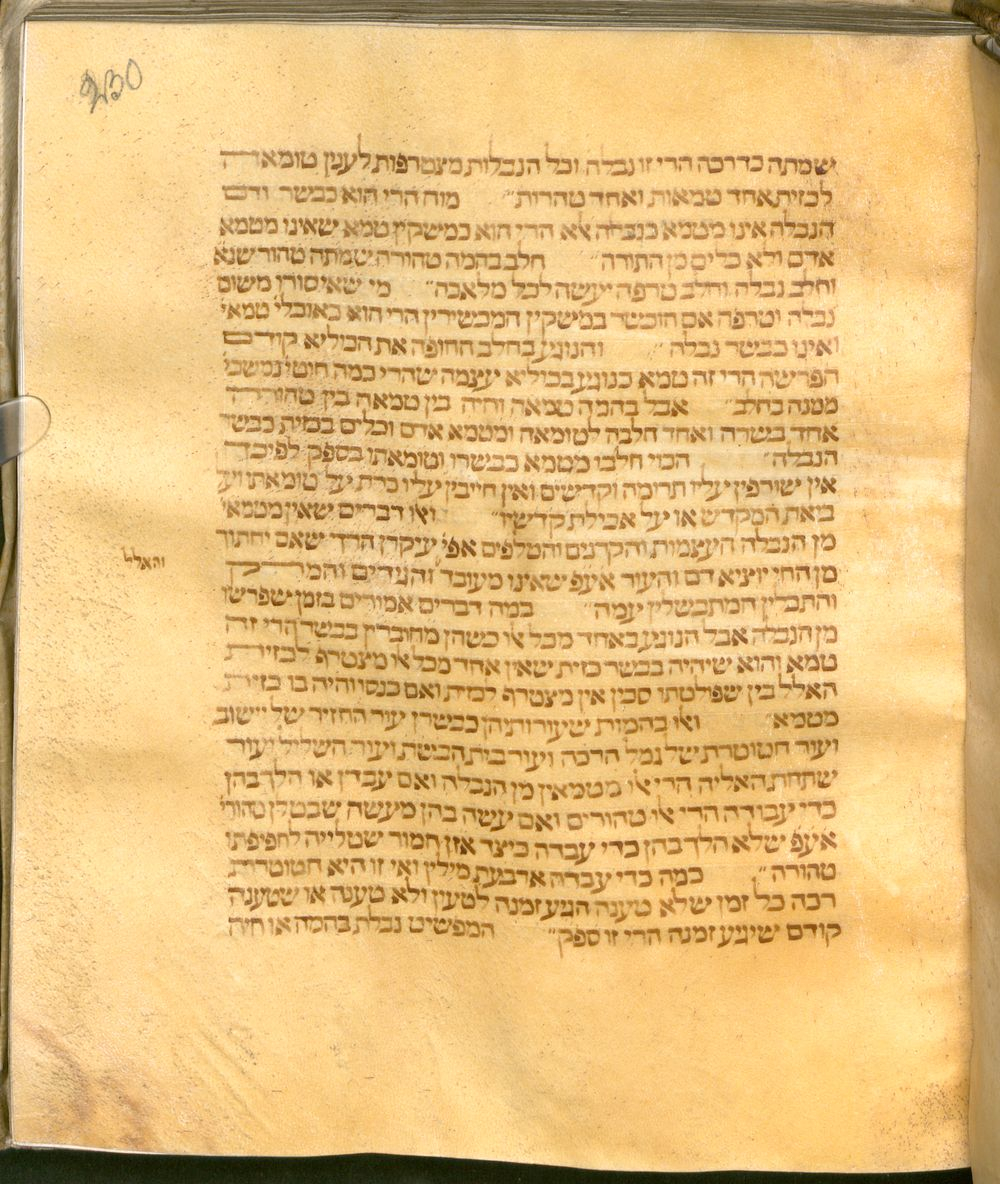 230
שמתה כדרכה הרי זו נבלה וכל הנבלות מצטרפות לענין טומאה
לכזית אחד טמאות ואחד טהורות״ מוח הרי הוא כבשר ודם
הנבלה אינו מטמא כנבלה אלא הרי הוא כמשקין טמא שאינו מטמא
אדם ולא כלים מן התורה״ חלב בהמה טהורה שמתה טהור שנא
וחלב נבלה וחלב טרפה יעשה לכל מלאכה״ מי שאיסורו משום
נבלה וטרפה אם הוכשר במישקין המכשירין הרי הוא כאוכלי טמאי
ואינו כבשר נבלה״ והנוגע בחלב החופה את הכוליא קודם
הפרישה הרי זה טמא כנוגע בכוליא עצמה שהרי כמה חוטי נמשכי
ממנה בחלב״ אבל בהמה טמאה וחיה בין טמאה בין טהורה
אחד בשרה ואחד חלבה לטומאה ומטמא אדם וכלים בכזית כבשר
הנבלה״ הכוי חלבו מטמא כבשרו וטומאתו בספק לפיכך
אין שורפין עליו תרומה וקדשים ואין חייבין עליו כרת על טומאתו ועל
ביאת המקדש או על אכילת קדשיו״ ואלו דברים שאין מטמאי
מן הנבלה העצמות והקרנים והטלפים אפי׳ עיקרן הרך שאם יחתוך
מן החי יוציא דם והעור אע״פ שאינו מעובד והגידים והמרק
והאלל
והתבלין המתבשלין עמה״ במה דברים אמורים בזמן שפרשו
מן הנבלה אבל הנוגע באחד מכל אלו כשהן מחוברין בבשר הרי זה
טמא והוא שיהיה בבשר כזית שאין אחד מכל אלו מצטרף לכזית
האלל בין שפולטתו סכין אין מצטרף לכזית ואם כנסו והיה בו כזית
מטמא״ ואלו בהמות שעורותיהן כבשרן עור החזיר של יישוב
ועור חטוטרת של גמל הרכה ועור בית הבשת ועור השליל ועור
שתחת האליה הרי אלו מטמאין מן הנבלה ואם עבדן או הלך בהן
כדי עבודה הרי אלו טהורים ואם עשה בהן מעשה שבטלן טהורי
אע״פ שלא הלך בהן כדי עבדה כיצד אזן חמור שטלייה לחפיפתו
טהורה״ כמה כדי עבדה ארבעת מילין ואי זו היא חטוטרת
רבה כל זמן שלא טענה הגיע זמנה לטעון ולא טענה או שטענה
קודם שיגיע זמנה הרי זו ספק״ המפשיט נבלת בהמה או חיה